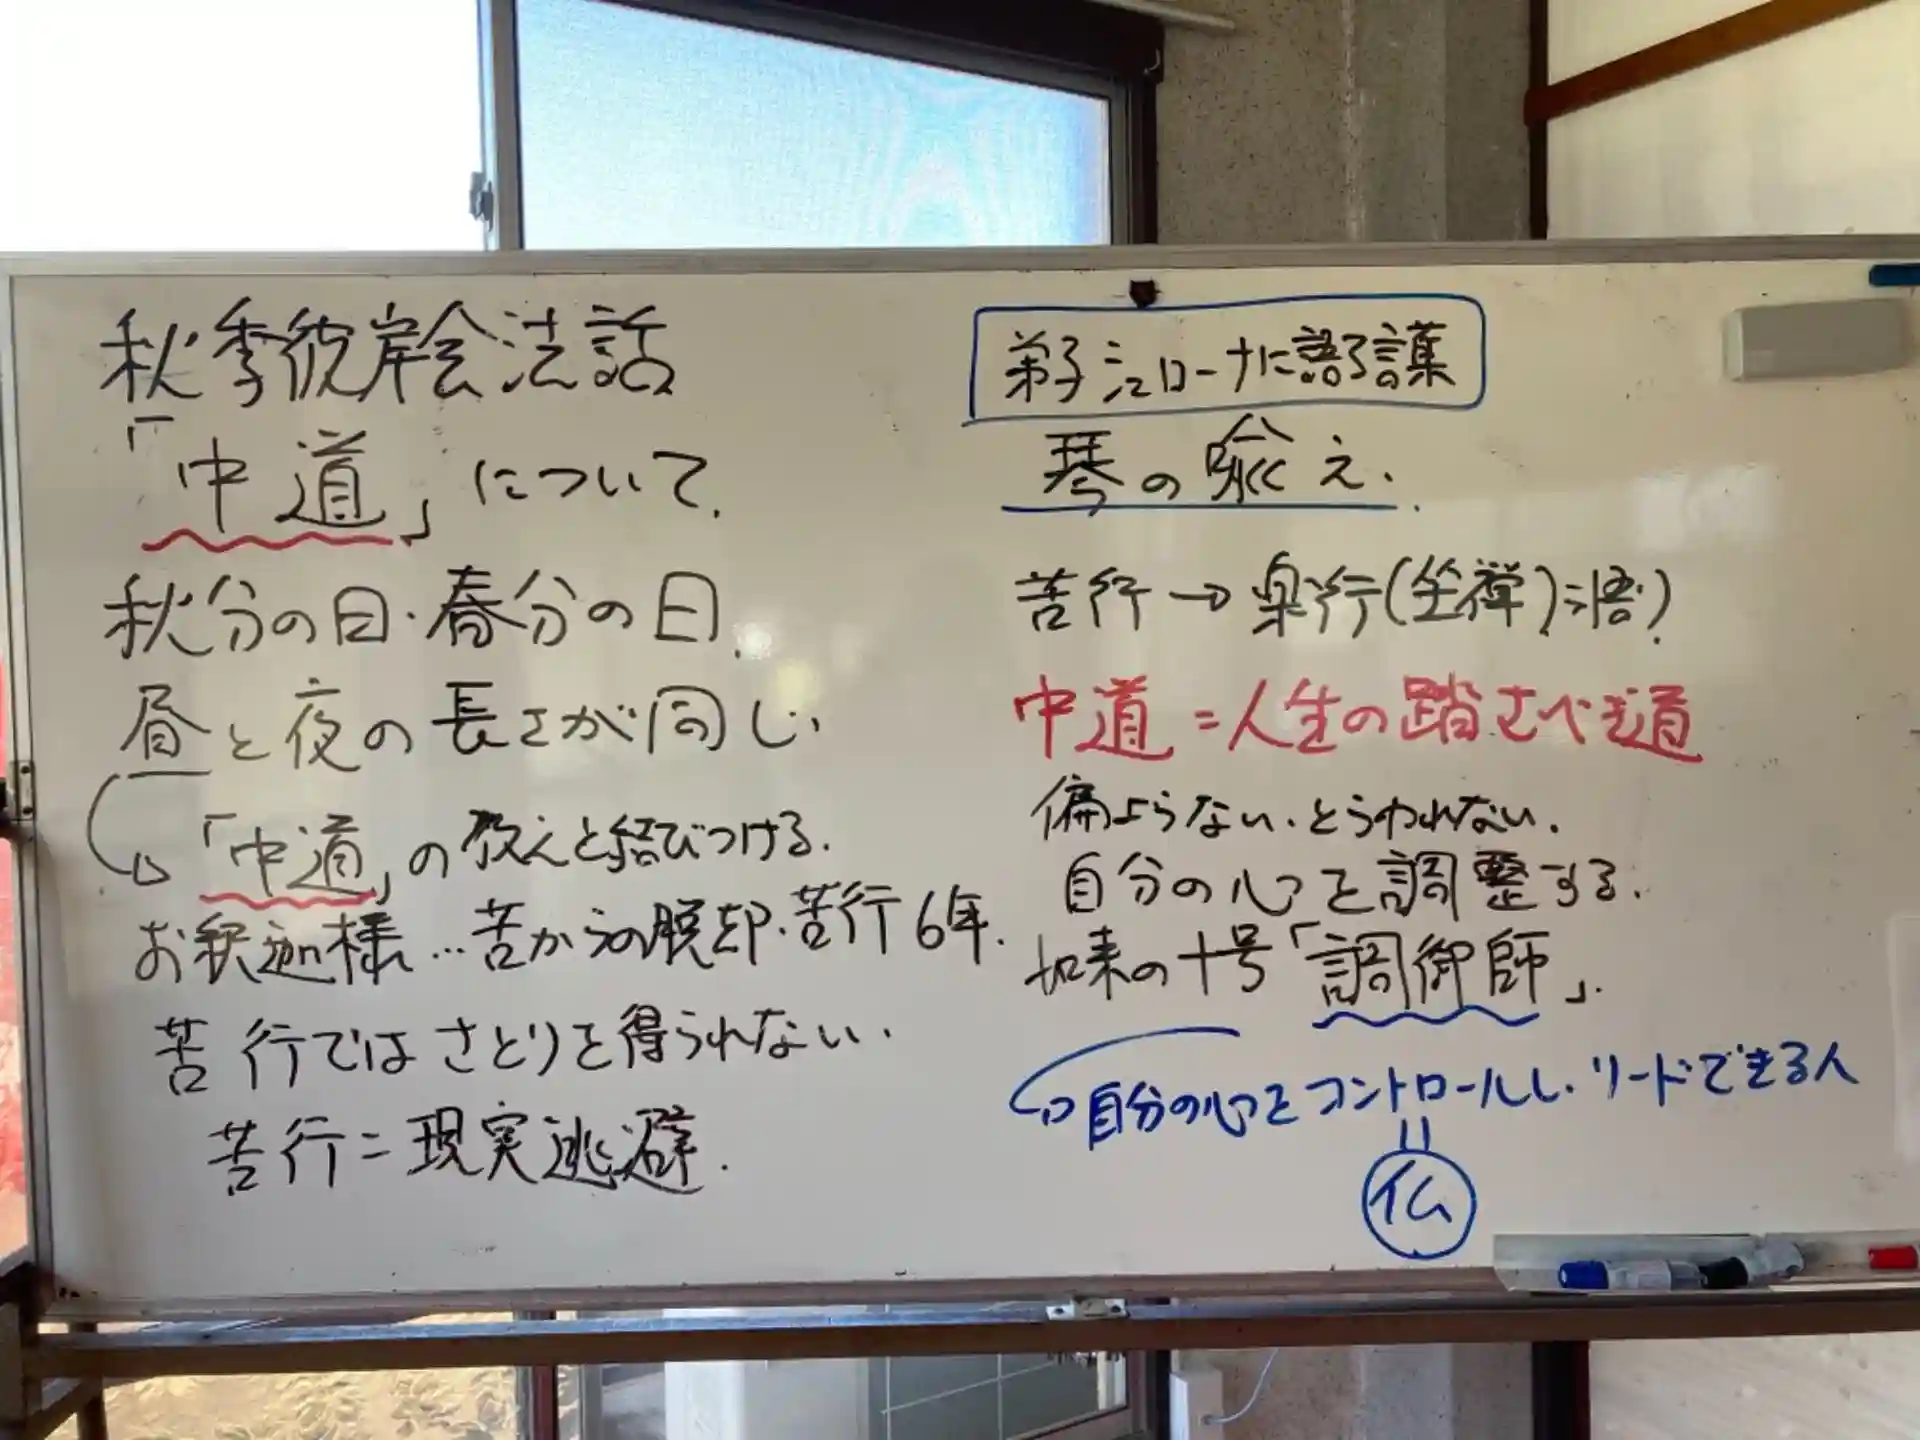 秋季彼岸会法話
「中道」について.
秋分の日・春分の日.
昼と夜の長さが同じ.
「中道」の教えと結びつける.
お釈迦様…苦からの脱却・苦行6年.
苦行ではさとりを得られない.
苦行=現実逃避.
弟子シュローナに語る言葉
琴の喩え.
苦行→楽行(坐禅)
中道=人生の踏むべき道
偏よらない・とらわれない.
自分の心を調整する.
如来の十号「調御師」.
自分の心をコントロールし・リードできる人
仏